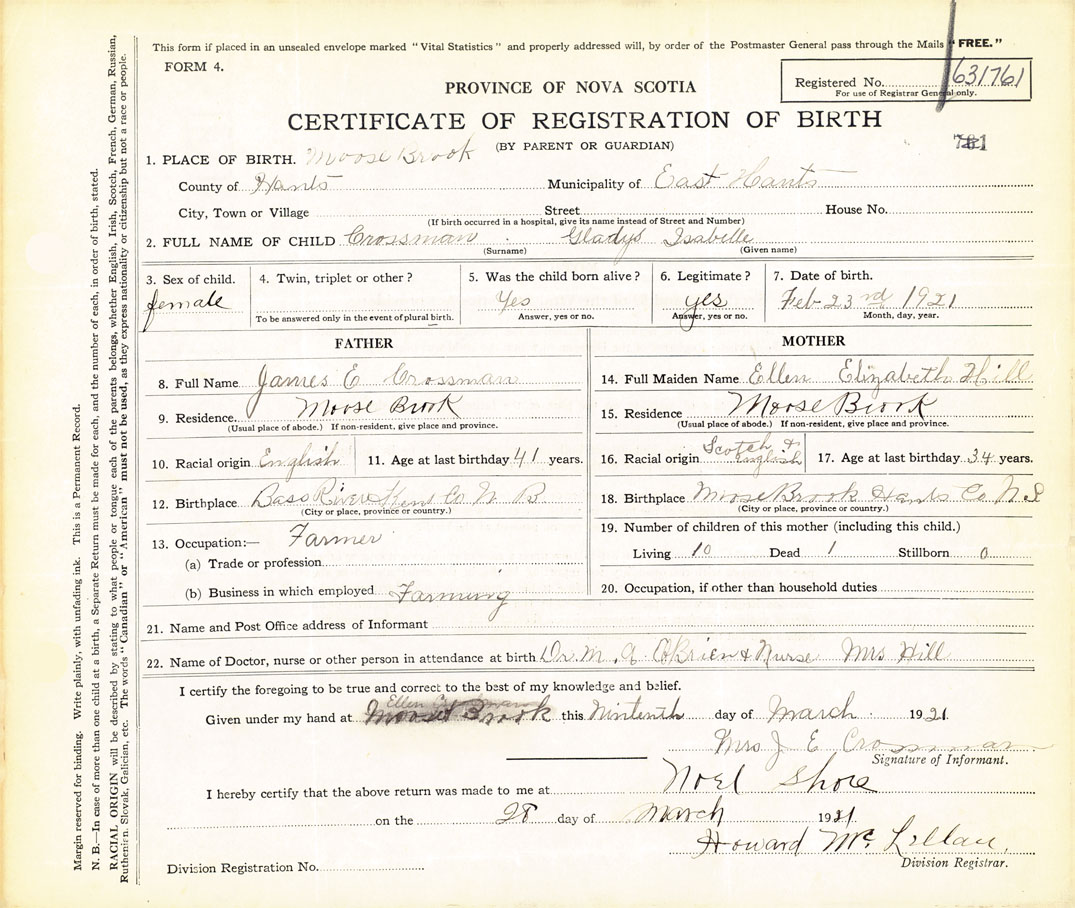 This form if placed in an unsealed envelope marked "Vital Statistics" and properly addressed will, by order of the Postmaster General pass through the Mails "FREE."
FORM 4.
Registered No. 631761
For use of Registrar General only.
PROVINCE OF NOVA SCOTIA
CERTIFICATE OF REGISTRATION OF BIRTH
(BY PARENT OR GUARDIAN)
1. PLACE OF BIRTH. Moose Brook
County of Hants Municipality of East Hants
City, Town or Village Street House No.
(If birth occurred in a hospital, give its name instead of Street and Number)
2. FULL NAME OF CHILD Crossman Gladys Isabelle
(Surname) (Given name)
3. Sex of child. 4. Twin, triplet or other? 5. Was the child born alive? 6. Legitimate? 7. Date of birth.
female Yes yes Feb 23rd 1921
To be answered only in the event of plural birth. Answer, yes or no. Answer, yes or no. Month, day, year.
FATHER
8. Full Name James E Crossman
9. Residence. Moose Brook
(Usual place of abode.) If non-resident, give place and province.
10. Racial origin English 11. Age at last birthday 41 years.
12. Birthplace Bass River Kent Co N B
(City or place, province or country.)
13. Occupation:— Farmer
(a) Trade or profession
(b) Business in which employed Farming
MOTHER
14. Full Maiden Name Ellen Elizabeth Hill
15. Residence Moose Brook
(Usual place of abode.) If non-resident, give place and province.
16. Racial origin Scotch & English 17. Age at last birthday 34 years.
18. Birthplace Moose Brook Hants Co N.S
(City or place, province or country.)
19. Number of children of this mother (including this child.)
Living 10 Dead 1 Stillborn 0
20. Occupation, if other than household duties
21. Name and Post Office address of Informant
22. Name of Doctor, nurse or other person in attendance at birth Dr. M. A. O'Brien & Nurse Mrs Hill
I certify the foregoing to be true and correct to the best of my knowledge and belief.
Given under my hand at Moose Brook this Ninteenth day of March 1921.
Mrs J E Crossman
Signature of Informant.
I hereby certify that the above return was made to me at Noel Shore
on the 28 day of March 1921
Howard McLellan.
Division Registrar.
Division Registration No.
Margin reserved for binding. Write plainly, with unfading ink. This is a Permanent Record.
N. B.—In case of more than one child at a birth, a Separate Return must be made for each, and the number of each, in order of birth, stated.
RACIAL ORIGIN will be described by stating to what people or tongue each of the parents belongs, whether English, Irish, Scotch, French, German, Russian,
Ruthenian, Slovak, Galician, etc. The words "Canadian" or "American" must not be used, as they express nationality or citizenship but not a race or people.